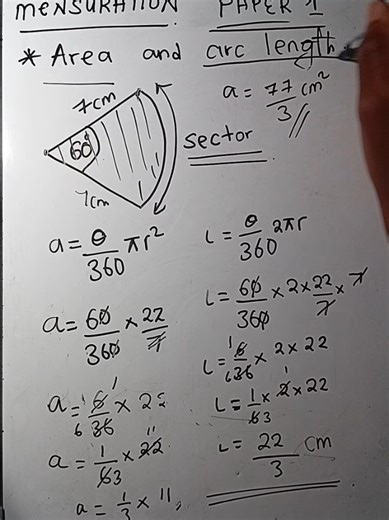 MENSURATION PAPER 1
* Area and arc length
a = 77/3 cm²
7cm
60°
7cm
sector
a = θ/360 πr²
a = 60/360 × 22/7
a = 6/36 × 22
a = 1/63 × 22 11
a = 1/3 × 11,
L = θ/360 2πr
L = 60/360 × 2 × 22/7 × 7
L = 6/36 × 2 × 22
L = 1/63 × 2 × 22
L = 22/3 cm